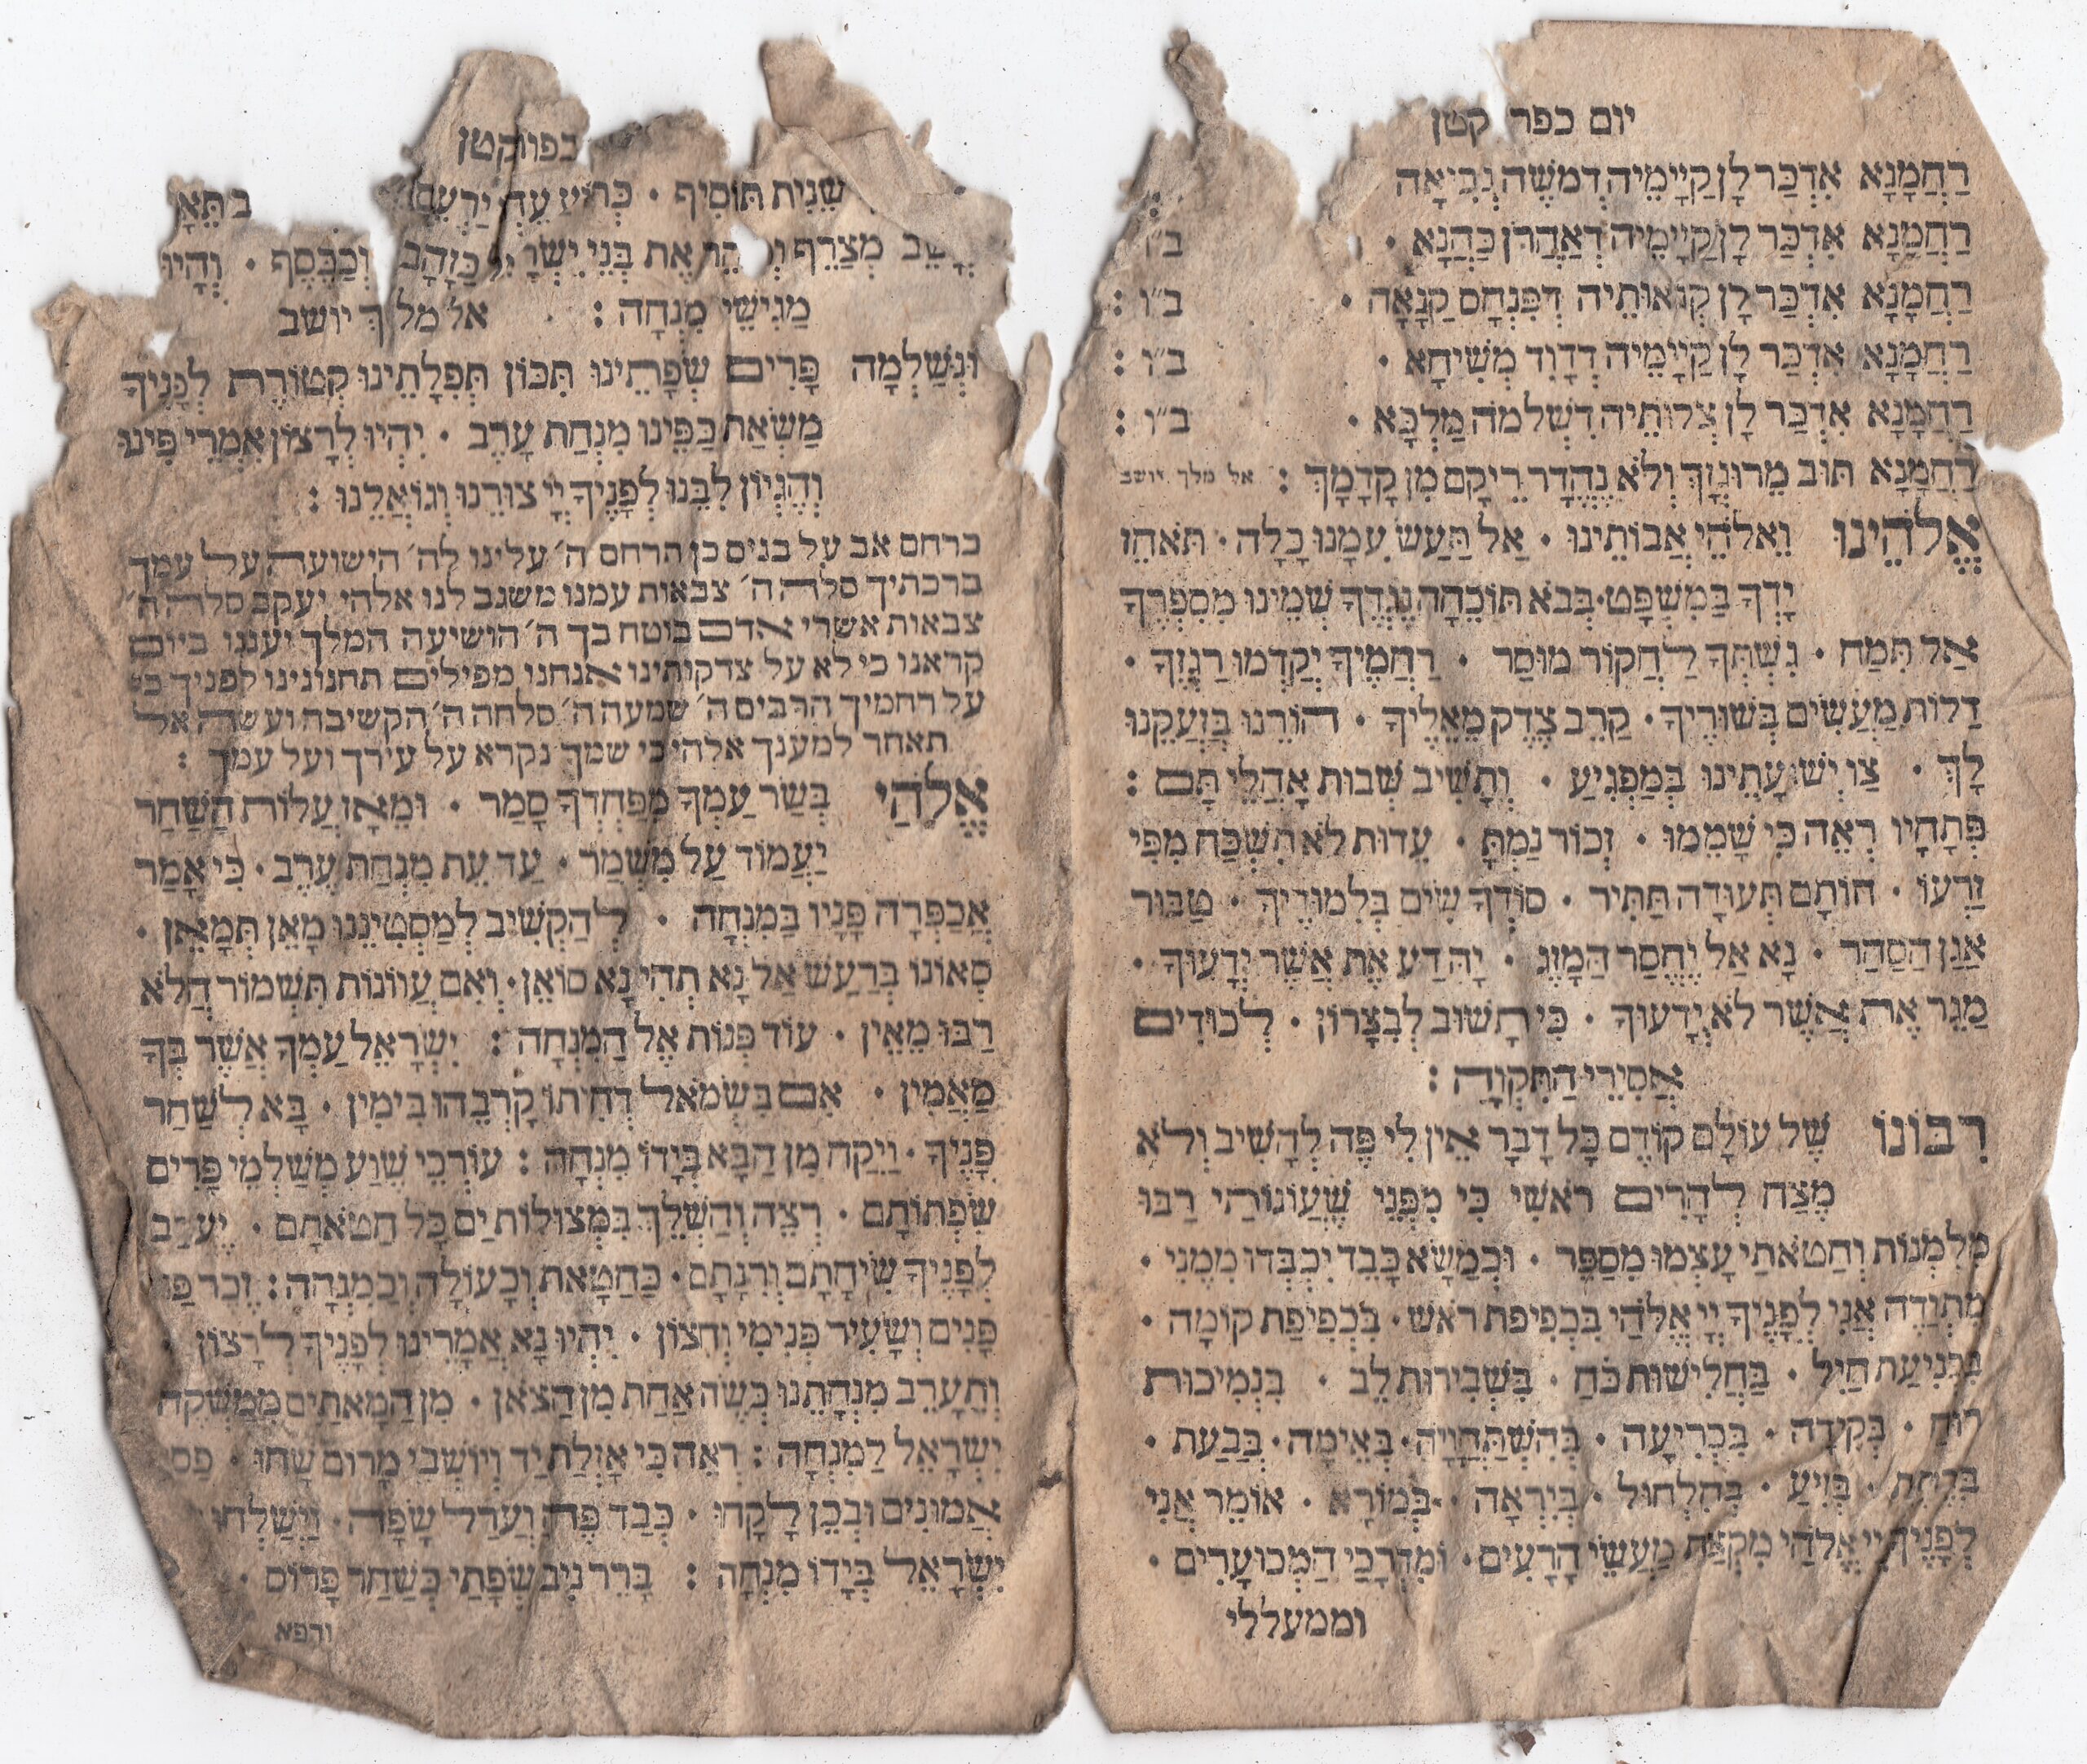 יום כפר קטן
רַחֲמָנָא אִדְכַּר לָן קַיָּימֵיהּ דְמֹשֶׁה נְבִיאָה
רַחֲמָנָא אִדְכַּר לָן קַיָּימֵיהּ דְאַהֲרֹן כַּהֲנָא · ב״ו
רַחֲמָנָא אִדְכַּר לָן קַנָּאוּתֵיהּ דְפִּנְחָס קַנָּאָה · ב״ו :
רַחֲמָנָא אִדְכַּר לָן קַיָּימֵיהּ דְדָוִד מְשִׁיחָא · ב״ו :
רַחֲמָנָא אִדְכַּר לָן צְלוֹתֵיהּ דִשְׁלמֹה מַלְכָּא · ב״ו :
רַחֲמָנָא תּוּב מֵרוּגְזָךְ וְלֹא נֶהֱדַר רֵיקָם מִן קָדָמָךְ : אל מלך יושב
אֱלֹהֵינוּ וֵאלֹהֵי אֲבוֹתֵינוּ · אַל תַּעַשׂ עִמָנוּ כָלָה · תֹּאחֵז
יָדְךָ בַּמִשְׁפָּט · בְּבֹא תוֹכֵחָה נֶגְדֶךָ שְׁמֵינוּ מִסִפְרֶךָ
אַל תֶּמַח · גִשְׁתְּךָ לַחֲקוֹר מוּסַר · רַחֲמֶיךָ יְקַדְמוּ רָגְזֶךָ ·
דַלּוּת מַעֲשִׂים בְּשׁוּרֶיךָ · קָרֵב צֶדֶק מֵאֵלֶיךָ · הוֹרֵנוּ בְּזַעֲקֵנוּ
לָךְ · צַו יְשׁוּעָתֵינוּ בְּמַפְגִיעַ · וְתָשִׁיב שְׁבוּת אָהֳלֵי תָּם :
פִּתְחָיו רְאֵה כִּי שָׁמֵמוּ · זְכוֹר נַמְתָּ · עֵדוּת לֹא תִשָּׁכַח מִפִּי
זַרְעוֹ · חוֹתָם תְּעוּדָה תַּתִּיר · סוֹדְךָ שִׂים בְּלִמוּדֶיךָ · טַבּוּר
אַגַּן הַסַהַר · נָא אַל יֶחְסַר הַמָזֶג · יָהּ דַע אֶת אֲשֶׁר יְדָעוּךָ ·
מַגֵּר אֶת אֲשֶׁר לֹא יְדָעוּךָ · כִּי תָשׁוּב לְבִצָּרוֹן · לְכוּדִים
אֲסִירֵי הַתִּקְוָה :
רִבּוֹנוֹ שֶׁל עוֹלָם קוֹדֵם כָּל דָבָר אֵין לִי פֶּה לְהָשִׁיב וְלֹא
מֶצַח לְהָרִים רֹאשִׁי כִּי מִפְּנֵי שֶׁעֲוֹנוֹתַי רַבּוּ
מִלִמְנוֹת וְחַטֹאתַי עָצְמוּ מִסַפֵּר · וּכְמַשָׂא כָּבֵד יִכְבְּדוּ מִמֶּנִי ·
מִתְוַדֶה אֲנִי לְפָנֶיךָ יְיָ אֱלֹהַי בִּכְפִיפַת רֹאשׁ · בִּכְפִיפַת קוֹמָה ·
בִּכְנִיעַת חַיִל · בַּחֲלִישׁוּת כֹּחַ · בִּשְׁבִירוּת לֵב · בִּנְמִיכוּת
רוּחַ · בְּקִידָה · בִּכְרִיעָה · בְּהִשְׁתַּחֲוָיָה · בְּאֵימָה · בְּבַעַת ·
בְּרֶתֶת · בְּזִיעַ · בְּחִלְחוּל · בְּיִרְאָה · בְּמוֹרָא · אוֹמֵר אֲנִי
לְפָנֶיךָ יְיָ אֱלֹהַי מִקְצַת מַעֲשַׂי הָרָעִים · וּמִדְּרָכַי הַמְכוֹעָרִים ·
וממעללי
כפווקטן
שֵׁנִית תּוֹסִיף · כְּרוֹעַ בְּתֵּאָ
מְצַרֵף אֶת בְּנֵי יִשְׂרָאֵל כַּזָהָב וְכַכֶּסֶף · וְהָיוּ
מַגִישֵׁי מִנְחָה : אל מלך יושב
וּנְשַׁלְמָה פָּרִים שְׂפָתֵינוּ תִּכּוֹן תְּפִלָתֵינוּ קְטוֹרֶת לְפָנֶיךָ
מַשְׂאַת כַּפֵּינוּ מִנְחַת עָרֶב · יִהְיוּ לְרָצוֹן אִמְרֵי פִינוּ
וְהֶגְיוֹן לִבֵּנוּ לְפָנֶיךָ יְיָ צוּרֵנוּ וְגוֹאֲלֵנוּ :
כרחם אב על בנים כן תרחם ה׳ עלינו לה׳ הישועה על עמך
ברכתיך סלה ה׳ צבאות עמנו משגב לנו אלהי יעקב סלה ה׳
צבאות אשרי אדם בוטח בך ה׳ הושיעה המלך יעננו ביום
קראנו כי לא על צדקותינו אנחנו מפילים תחנונינו לפניך כי
על רחמיך הרבים ה׳ שמעה ה׳ סלחה ה׳ הקשיבה ועשה אל
תאחר למענך אלהי כי שמך נקרא על עירך ועל עמך :
אֱלֹהַי בְּשַׂר עַמְךָ מִפַּחְדְךָ סָמַר · וּמֵאָז עֲלוֹת הַשַּׁחַר
יַעֲמוֹד עַל מִשְׁמַר · עַד עֵת מִנְחַת עֶרֶב · כִּי אָמַר
אֲכַפְּרָה פָּנָיו בַּמִנְחָה · לְהַקְשִׁיב לְמַסְטִינֵנוּ מָאֵן תְּמָאֵן ·
סְאוֹנוֹ בְּרַעַשׁ אַל נָא תְהִי נָא סוֹאֵן · וְאִם עֲווֹנוֹת תִּשְׁמוֹר הֲלֹא
רַבּוּ מֵאֵין · עוֹד פְּנוֹת אֶל הַמִנְחָה : יִשְׂרָאֵל עַמְךָ אֲשֶׁר בְּךָ
מַאֲמִין · אִם בִּשְׂמֹאל דְחִיתוֹ קָרְבֵהוּ בְּיָמִין · בָּא לְשַׁחֵר
פָּנֶיךָ · וַיִּקַח מִן הַבָּא בְּיָדוֹ מִנְחָה : עוֹרְכֵי שֶׁוַע מְשַׁלְמֵי פָּרִים
שִׂפְתוֹתָם · רְצֵה וְהַשְׁלֵךְ בִּמְצוּלוֹת יַם כָּל חַטֹאתָם · יֶעֱרַב
לְפָנֶיךָ שִׂיחָתָם וְרִנָתָם · כַּחַטָאת וְכָעוֹלָה וְכַמִנְחָה : זֶכֶר
פָּנִים וְשָׂעִיר פְּנִימִי וְחִצוֹן · יִהְיוּ נָא אֲמָרֵינוּ לְפָנֶיךָ לְרָצוֹן
וְתֶעֱרַב מִנְחָתֵנוּ כְּשֶׂה אַחַת מִן הַצֹאן · מִן הַמָאתַיִם מִמַשְׁקֵה
יִשְׂרָאֵל לַמִנְחָה : רְאֵה כִּי אָזְלַת יַד וְיוֹשְׁבֵי מָרוֹם שָׁחוּ · פַּסּ
אֲמוּנִים וּבְכֵן לָקָחוּ · כְּבַד פֶּה וַעֲרַל שָׂפָה · וַיִּשְׁלְחוּ
יִשְׂרָאֵל בְּיָדוֹ מִנְחָה : בָּרֵר נִיב שְׂפָתַי כְּשַׁחַר פָּרוּס ·
ורפא